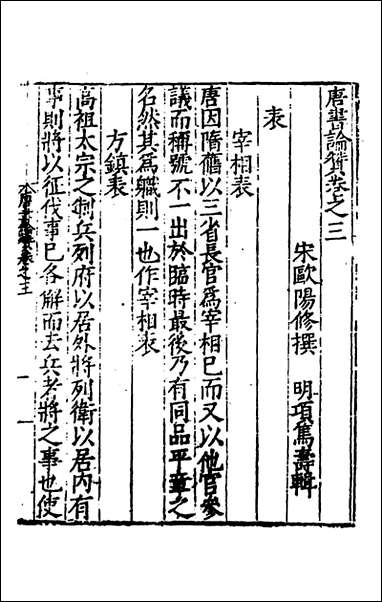 唐書論贊卷之三
宋歐陽修撰　明項篤壽輯
表
宰相表
唐因隋舊以三省長官爲宰相已而又以他官參
議而稱號不一出於臨時最後乃有同品平章之
名然其爲職則一也作宰相表
方鎮表
高祖太宗之制兵列府以居外將列衛以居內有
事則將以征伐事已各解而去兵者將之事也使
唐書論贊卷之三
一